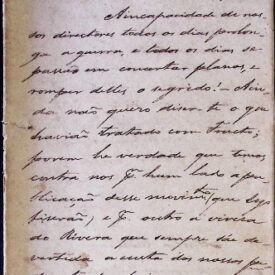 A incapacidade de nos-
sos directores todos os dias prolon-
ga a guerra, e todos os dias se
passão em concertar planos, e
romper delles o segredo! - Ain-
da não quiero diserte o que
havião tratado com Fructo;
porem he verdade que temos
contra nos p. hum lado a pu-
blicação desse movimto, que
fizerão, e p. outro a viveza
do Rivera que sempre sáe de
vertida a custa dos nossos